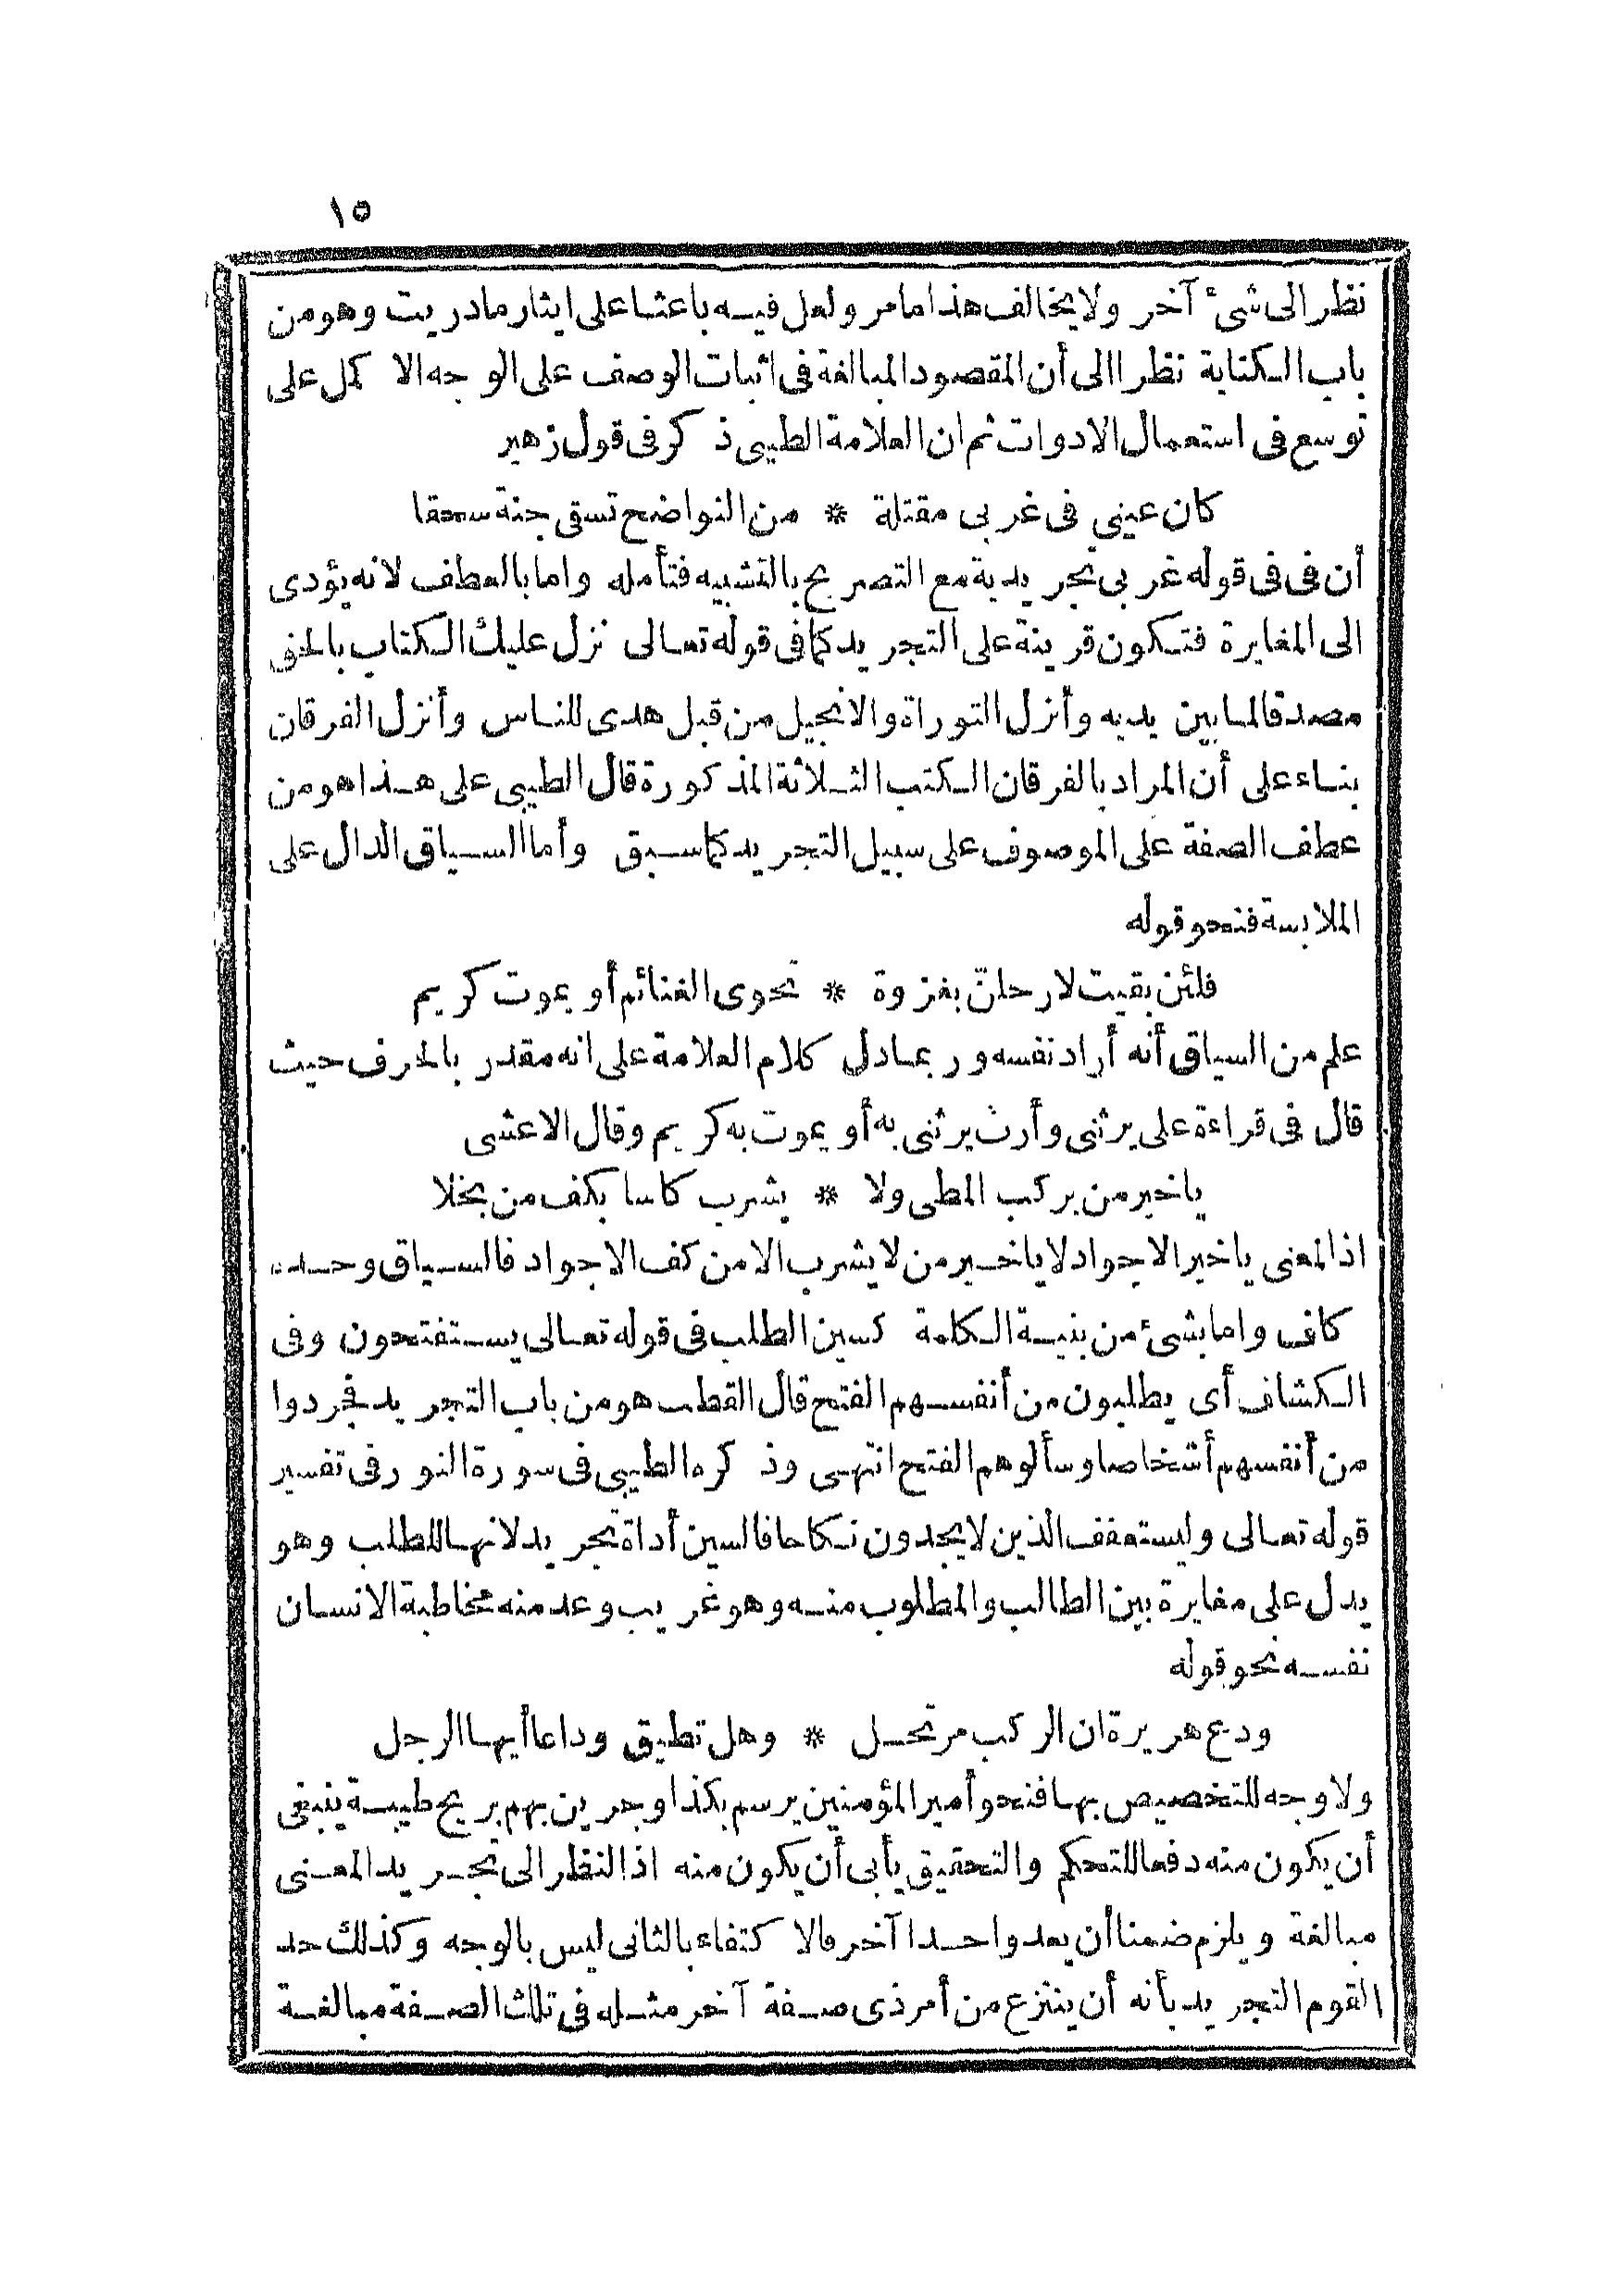 ١٥
نظر الى شئ آخر ولا يخالف هذا ما مر ولعل فيه باعثا على ايثار ما دريت وهو من
باب الكناية نظرا الى أن المقصود المبالغة فى اثبات الوصف على الوجه الا كمل على
توسع فى استعمال الادوات ثم ان العلامة الطيبى ذكر فى قول زهير
كان عينى فى غربى مقتلة * من النواضح تسقى جنة سحقا
أن فى فى قوله غربى تجريدية مع التصريح بالتشبيه فتأمله واما بالعطف لانه يؤدى
الى المغايرة فتكون قرينة على التجريد كما فى قوله تعالى نزل عليك الكتاب بالحق
مصدقا لما بين يديه وأنزل التوراة والانجيل من قبل هدى للناس وأنزل الفرقان
بناء على أن المراد بالفرقان الكتب الثلاثة المذكورة قال الطيبى على هذا هو من
عطف الصفة على الموصوف على سبيل التجريد كما سبق وأما السياق الدال على
الملابسة فنحو قوله
فلئن بقيت لارحلنّ بغزوة * تحوى الغنائم أو يموت كريم
علم من السياق أنه أراد نفسه وربما دل كلام العلامة على انه مقدر بالحرف حيث
قال فى قراءة على يرثنى وأرث يرثنى به أو يموت به كريم وقال الاعشى
يا خير من يركب المطى ولا * يشرب كاسا بكف من بخلا
اذ المعنى يا خير الاجواد لا يا خير من لا يشرب الا من كف الاجواد فالسياق وحده
كاف واما بشئ من بنية الكلمة كسين الطلب فى قوله تعالى يستفتحون وفى
الكشاف أى يطلبون من أنفسهم الفتح قال القطب هو من باب التجريد فجردوا
من أنفسهم أشخاصا وسألوهم الفتح انتهى وذكره الطيبى فى سورة النور فى تفسير
قوله تعالى وليستعفف الذين لا يجدون نكاحا فالسين أداة تجريد لانها للطلب وهو
يدل على مغايرة بين الطالب والمطلوب منه وهو غريب وعد منه مخاطبة الانسان
نفسه نحو قوله
ودع هريرة ان الركب مرتحل * وهل تطيق وداعا أيها الرجل
ولا وجه للتخصيص بها فنحو أمير المؤمنين يرسم بكذا وجرين بهم بريح طيبة ينبغى
أن يكون منه دفعا للتحكم والتحقيق يأبى أن يكون منه اذ النظر الى تجريد المعنى
مبالغة ويلزم ضمنا أن يعد واحدا آخر فالا كتفاء بالثانى ليس بالوجه وكذلك حد
القوم التجريد بأنه أن ينتزع من أمر ذى صفة آخر مثله فى تلك الصفة مبالغة